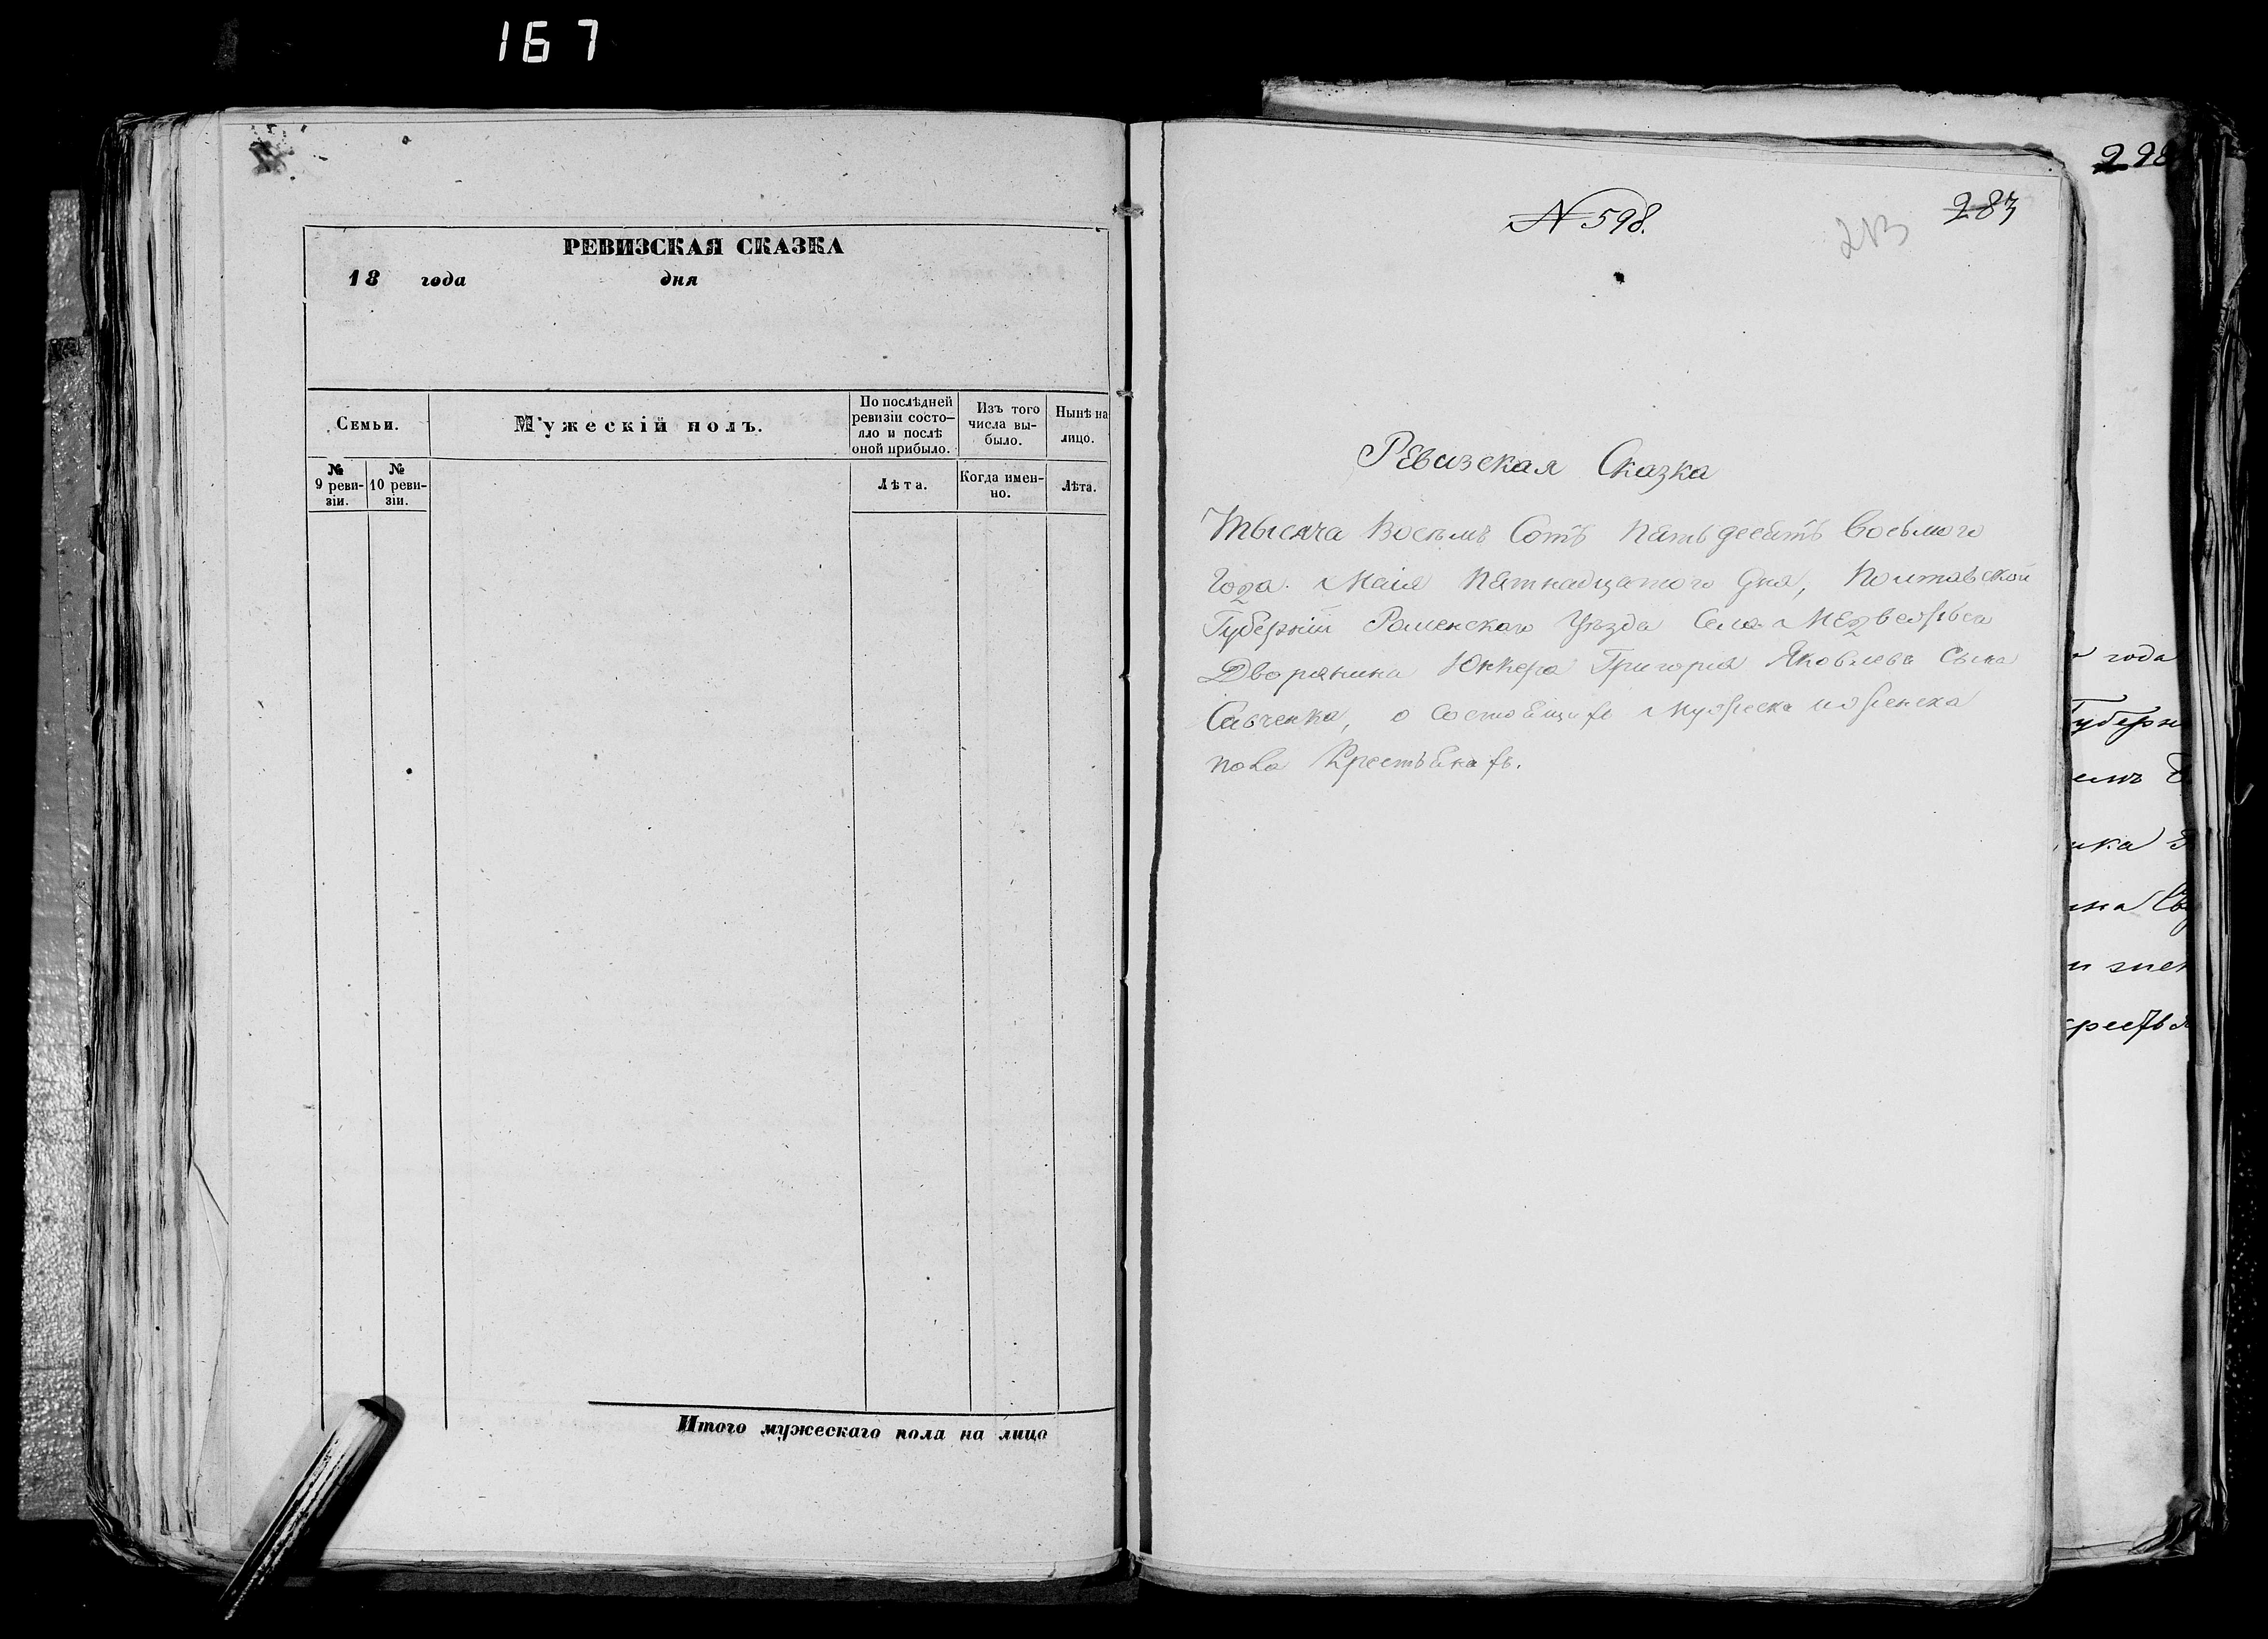 167
РЕВИЗСКАЯ СКАЗКА
18 года дня
Семьи.
Мужескій полъ.
По послѣдней ревизіи состо-яло и послѣ оной прибыло.
Изъ того числа вы-было.
Нынѣ на лицо.
№ 9 реви-зіи.
№ 10 реви-зіи.
Лѣта.
Когда имен-но.
Лѣта.
Итого мужескаго пола на лицо
№ 598.
283
Ревизская Сказка
Тысяча Восемъ Сотъ Пятьдесятъ Восьмого
Года Маія Пятнадцатого Дня, Полтавской
Губерніи Роменского Уезда Села Медвежьего
Дворянина Юнкера Григорія Яковлева Сына
Савченка, о Состоящихъ Мужеска и Женска
пола Крестьянахъ.
298
года
Губерн